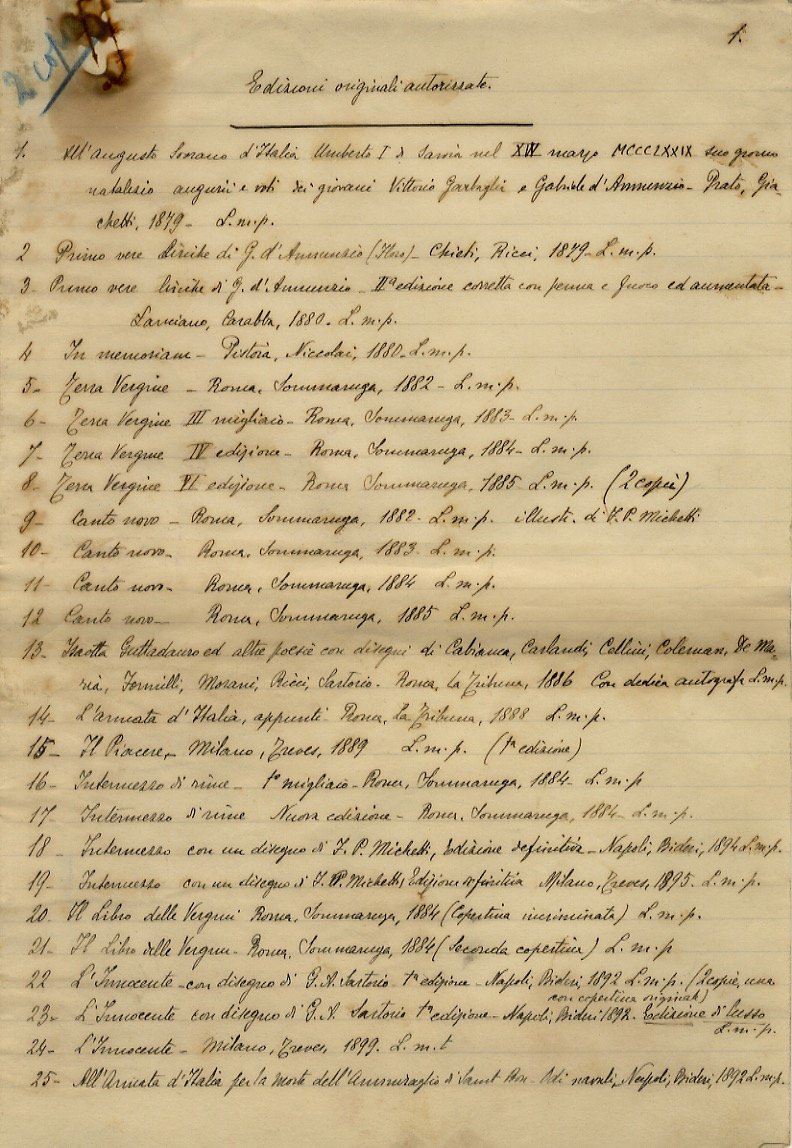 2 copie
1.
Edizioni originali autorizzate.
1. All'augusto Sovrano d'Italia Umberto I di Savoia nel XIV marzo MCCCLXXIX suo giorno
natalizio augurii e voti dei giovani Vittorio Garbaglia e Gabriele d'Annunzio - Prato, Gia-
chetti, 1879 - L.m.p.
2 Primo vere liriche di G. d'Annunzio (Floro) - Chieti, Ricci, 1879 - L.m.p.
3 - Primo vere liriche di G. d'Annunzio - IIª edizione corretta con penna e fuoco ed aumentata -
Lanciano, Carabba, 1880 - L.m.p.
4 In memoriam - Pistoia, Niccolai, 1880 - L.m.p.
5 - Terra Vergine - Roma, Sommaruga, 1882 - L.m.p.
6 - Terra Vergine III migliaio - Roma, Sommaruga, 1883 - L.m.p.
7 - Terra Vergine IV edizione - Roma, Sommaruga, 1884 - L.m.p.
8 - Terra Vergine VI edizione - Roma Sommaruga, 1885 - L.m.p. (2 copie)
9 - Canto novo - Roma, Sommaruga, 1882 - L.m.p. illustr. di F.P. Michetti
10 - Canto novo - Roma, Sommaruga, 1883 - L.m.p.
11 - Canto novo - Roma, Sommaruga, 1884 L.m.p.
12 Canto novo - Roma, Sommaruga, 1885 L.m.p.
13 - Isotta Guttadauro ed altre poesie con disegni di Cabianca, Carlandi, Cellini, Coleman, De Ma-
ria, Formilli, Morani, Ricci, Sartorio - Roma, La Tribuna, 1886 Con dedica autografa L.m.p.
14 - L'armata d'Italia, appunti - Roma, La Tribuna, 1888 L.m.p.
15 - Il Piacere, - Milano, Treves, 1889 L.m.p. (1ª edizione)
16 - Intermezzo di rime - 1º migliaio - Roma, Sommaruga, 1884 - L.m.p
17 - Intermezzo di rime Nuova edizione - Roma, Sommaruga, 1884 - L.m.p.
18 - Intermezzo con un disegno di F.P. Michetti, Edizione definitiva - Napoli, Bideri, 1894 L.m.p.
19 - Intermezzo con un disegno di F.P. Michetti, Edizione definitiva Milano, Treves, 1895. L.m.p.
20 Il Libro delle Vergini Roma, Sommaruga, 1884 (Copertina incriminata) L.m.p.
21 - Il Libro delle Vergini - Roma, Sommaruga, 1884 (Seconda copertina) L.m.p
22 L'Innocente - con disegno di G.A. Sartorio 1ª edizione - Napoli, Bideri, 1892 L.m.p. (2 copie, una
con copertina originale)
23 - L'Innocente con disegno di G.A. Sartorio 1ª edizione - Napoli, Bideri 1892. Edizione di lusso
L.m.p.
24 - L'Innocente - Milano, Treves, 1899. L.m.t
25 - All'Armata d'Italia per la morte dell'Ammiraglio di Saint Bon - Odi navali, Napoli, Bideri, 1892 L.m.p.